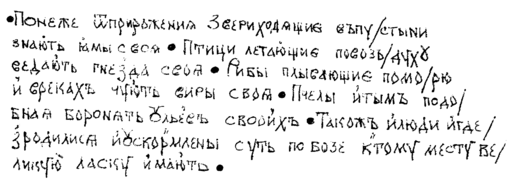 •Понеже ѿприрожения звериходящие въпу/стыни
знають ѩмы своѧ • Птици летающие повозъ/духу
ведають гнезда своѧ • Рибы плывающие помо/рю
и вреках чують виры своя • Пчелы итымъ подо/
бная боронять ульевъ своихъ • Такожъ илюди игде/
зродилисѧ ивскормлены суть по возе ктому месту ве/
ликую ласку имають •